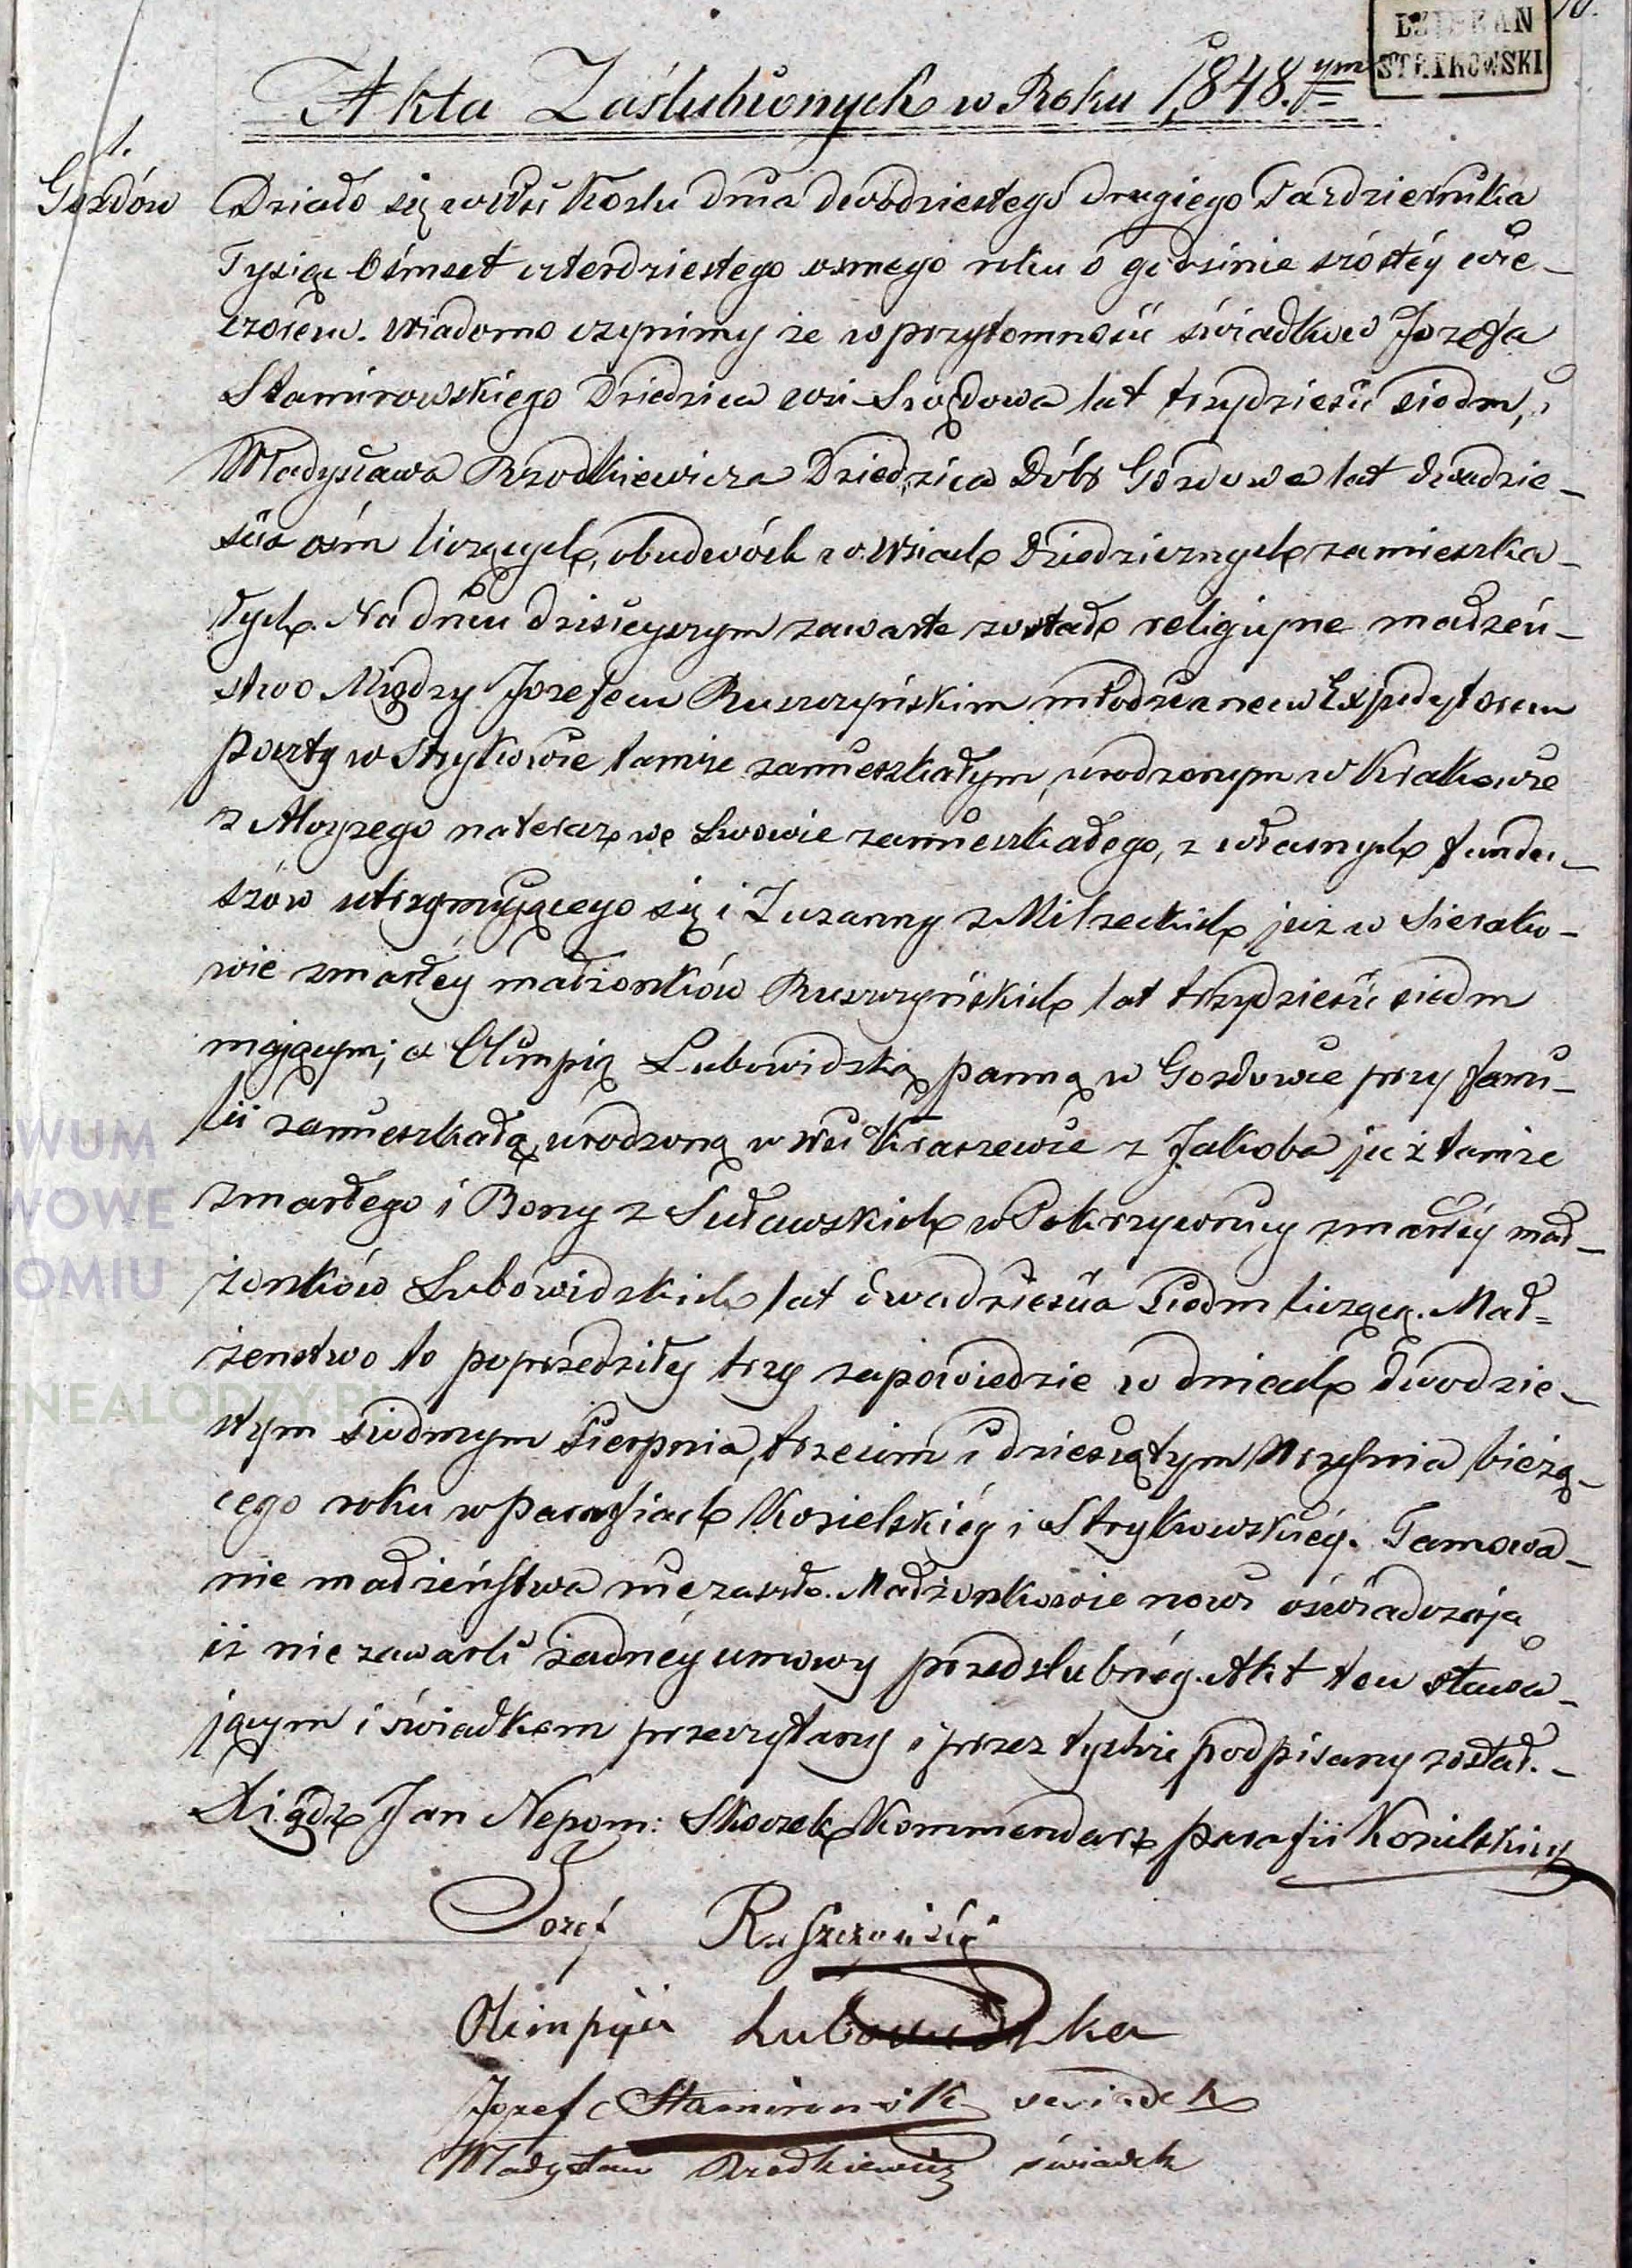 DZIEKAN
STRYKOWSKI
Akta Zaślubionych w Roku 1848.ym
1.
Gozdów
Działo się we Wsi Koźlu dnia dwódziestego drugiego Pazdziernika
Tysiąc Ośmset czterdziestego osmego roku o godzinie szóstéy wie-
czorem. Wiadomo czynimy że w przytomności świadków Jozefa
Stamirowskiego Dziedzica wsi Swędowa lat trzydzieści siedm, i
Władysława Brodkiewicza Dziedzica Dóbr Gozdowa lat dwadzie-
ścia ośm liczących, obudwóch w Wsiach Dziedzicznych zamieszka-
łych. Na dniu dzisieyszym zawarte zostało religijne małżeń-
stwo Między Jozefem Ruszczyńskim młodzianem Expedytorem
poczty w Strykowie tamże zamieszkałym, urodzonym w Krakowie
z Aloyzego na teraz we Lwowie zamieszkałego, z własnych fundu-
szów utrzymującego się i Zuzanny z Milzeckich już w Sierako-
wie zmarłéy małżonków Ruszczyńskich lat trzydzieści siedm
mającym; a Olimpią Lubowidzką panną w Gozdowie przy fami-
lii zamieszkałą, urodzoną w Wsi Kraszewie z Jakóba już tamże
zmarłego i Bony z Suławskich w Pokrzywnicy zmarłéy mał-
żonków Lubowidzkich lat dwadzieścia siedm liczącą. Mał=
żenstwo to poprzedziły trzy zapowiedzie w dniach dwodzie-
stym siodmym Sierpnia, trzecim i dziesiątym Września bieżą-
cego roku w parafiach Kozielskiéy i Strykowskiéy. Tamowa-
nie małżeństwa nie zaszło. Małżonkowie nowi oświadczają
iż nie zawarli żadnéy umowy przedślubnéy. Akt ten stawa-
jącym i świadkom przeczytany i przez tychże podpisany został.-
Xiądz Jan Nepom: Skoczek Kommendarz parafii Kozielskiey
Jozef Ruszczyński
Olimpija Lubowidzka
Jozef Stamirowski swiadek
Władysław Brodkiewicz świadek